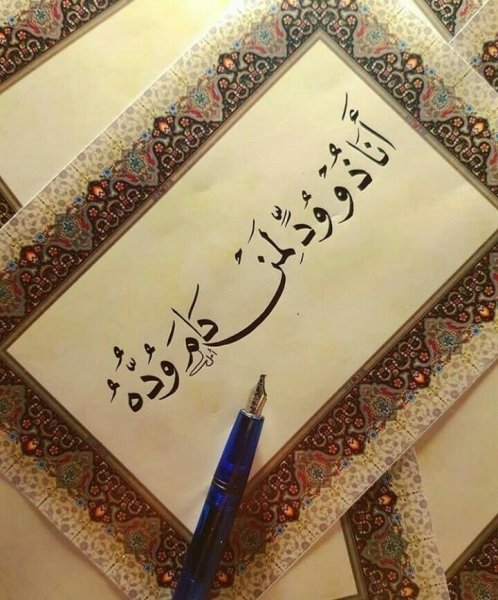 أَنَا ذُو وُدٍّ لِمَنْ دَامَ وُدُّهُ